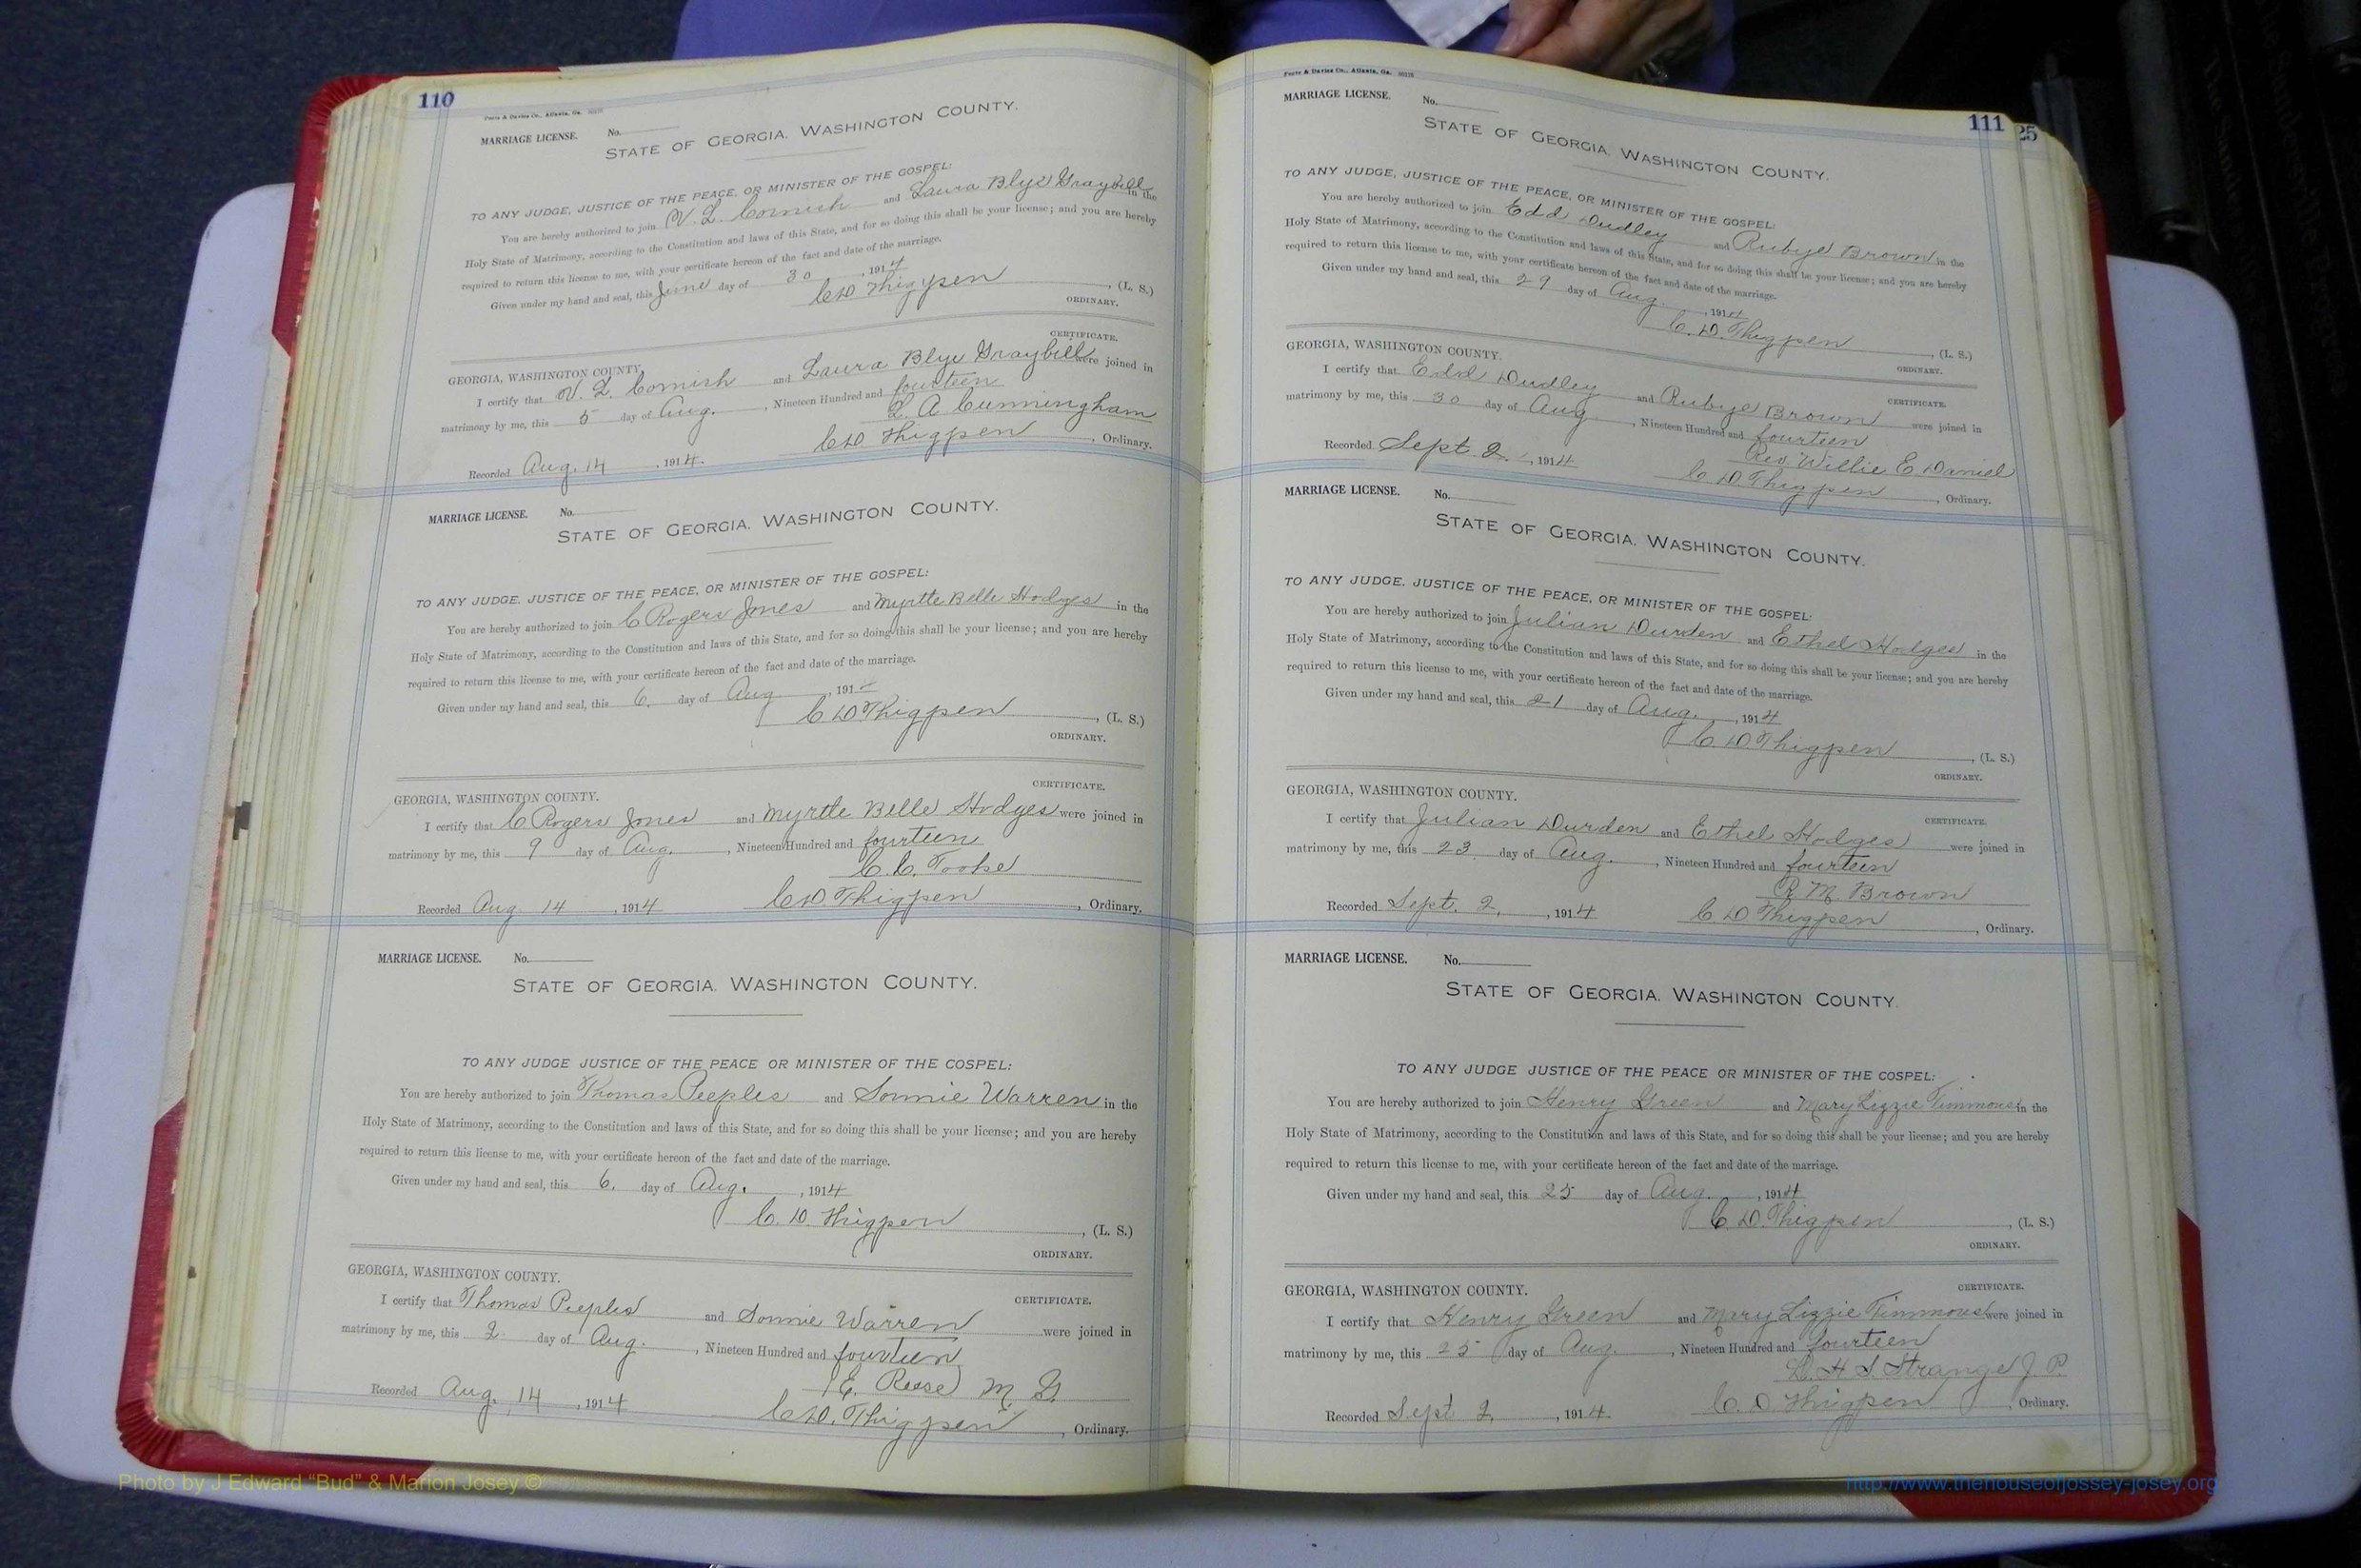 110
Foote & Davies Co., Atlanta, Ga.
MARRIAGE LICENSE. No.
STATE OF GEORGIA, WASHINGTON COUNTY.
TO ANY JUDGE, JUSTICE OF THE PEACE, OR MINISTER OF THE GOSPEL:
You are hereby authorized to join V. L. Cornish and Laura Blye Graybill in the
Holy State of Matrimony, according to the Constitution and laws of this State, and for so doing this shall be your license; and you are hereby
required to return this license to me, with your certificate hereon of the fact and date of the marriage.
Given under my hand and seal, this June day of 30, 1914
C D Thigpen, (L. S.)
ORDINARY.
CERTIFICATE.
GEORGIA, WASHINGTON COUNTY.
I certify that V. L. Cornish and Laura Blye Graybill were joined in
matrimony by me, this 5 day of Aug., Nineteen Hundred and fourteen
L. A. Cunningham
Recorded Aug. 14, 1914. C D Thigpen, Ordinary.
MARRIAGE LICENSE. No.
STATE OF GEORGIA, WASHINGTON COUNTY.
TO ANY JUDGE, JUSTICE OF THE PEACE, OR MINISTER OF THE GOSPEL:
You are hereby authorized to join C Rogers Jones and Myrtle Belle Hodges in the
Holy State of Matrimony, according to the Constitution and laws of this State, and for so doing this shall be your license; and you are hereby
required to return this license to me, with your certificate hereon of the fact and date of the marriage.
Given under my hand and seal, this 6. day of Aug., 1914
C D Thigpen, (L. S.)
ORDINARY.
CERTIFICATE.
GEORGIA, WASHINGTON COUNTY.
I certify that C. Rogers Jones and Myrtle Belle Hodges were joined in
matrimony by me, this 9 day of Aug., Nineteen Hundred and fourteen
C. C. Tooke
Recorded Aug 14, 1914 C D Thigpen, Ordinary.
MARRIAGE LICENSE. No.
STATE OF GEORGIA, WASHINGTON COUNTY.
TO ANY JUDGE JUSTICE OF THE PEACE OR MINISTER OF THE GOSPEL:
You are hereby authorized to join Thomas Peeples and Sonnie Warren in the
Holy State of Matrimony, according to the Constitution and laws of this State, and for so doing this shall be your license; and you are hereby
required to return this license to me, with your certificate hereon of the fact and date of the marriage.
Given under my hand and seal, this 6. day of Aug., 1914
C. D. Thigpen, (L. S.)
ORDINARY.
GEORGIA, WASHINGTON COUNTY.
CERTIFICATE.
I certify that Thomas Peeples and Sonnie Warren were joined in
matrimony by me, this 2 day of Aug., Nineteen Hundred and fourteen
E. Reese M. G.
Recorded Aug. 14, 1914 C. D. Thigpen, Ordinary.
111
25
Foote & Davies Co., Atlanta, Ga.
MARRIAGE LICENSE. No.
STATE OF GEORGIA, WASHINGTON COUNTY.
TO ANY JUDGE, JUSTICE OF THE PEACE, OR MINISTER OF THE GOSPEL:
You are hereby authorized to join Edd Dudley and Rubye Brown in the
Holy State of Matrimony, according to the Constitution and laws of this State, and for so doing this shall be your license; and you are hereby
required to return this license to me, with your certificate hereon of the fact and date of the marriage.
Given under my hand and seal, this 29 day of Aug., 1914
C. D. Thigpen, (L. S.)
ORDINARY.
GEORGIA, WASHINGTON COUNTY.
CERTIFICATE.
I certify that Edd Dudley and Rubye Brown were joined in
matrimony by me, this 30 day of Aug, Nineteen Hundred and fourteen
Rev Willie E Daniel
Recorded Sept. 2., 1914 C D Thigpen, Ordinary.
MARRIAGE LICENSE. No.
STATE OF GEORGIA, WASHINGTON COUNTY.
TO ANY JUDGE, JUSTICE OF THE PEACE, OR MINISTER OF THE GOSPEL:
You are hereby authorized to join Julian Durden and Ethel Hodges in the
Holy State of Matrimony, according to the Constitution and laws of this State, and for so doing this shall be your license; and you are hereby
required to return this license to me, with your certificate hereon of the fact and date of the marriage.
Given under my hand and seal, this 21 day of Aug., 1914
C D Thigpen, (L. S.)
ORDINARY.
GEORGIA, WASHINGTON COUNTY.
CERTIFICATE.
I certify that Julian Durden and Ethel Hodges were joined in
matrimony by me, this 23 day of Aug., Nineteen Hundred and fourteen
R. M. Brown
Recorded Sept. 2, 1914 C D Thigpen, Ordinary.
MARRIAGE LICENSE. No.
STATE OF GEORGIA, WASHINGTON COUNTY.
TO ANY JUDGE JUSTICE OF THE PEACE OR MINISTER OF THE GOSPEL:
You are hereby authorized to join Henry Green and Mary Lizzie Timmons in the
Holy State of Matrimony, according to the Constitution and laws of this State, and for so doing this shall be your license; and you are hereby
required to return this license to me, with your certificate hereon of the fact and date of the marriage.
Given under my hand and seal, this 25 day of Aug., 1914
C. D. Thigpen, (L. S.)
ORDINARY.
GEORGIA, WASHINGTON COUNTY.
CERTIFICATE.
I certify that Henry Green and Mary Lizzie Timmons were joined in
matrimony by me, this 25 day of Aug., Nineteen Hundred and fourteen
H. S. Strange J. P.
Recorded Sept 2, 1914. C. D Thigpen, Ordinary.
Photo by J Edward “Bud” & Marion Josey ©
http://www.thehouseofjossey-josey.org